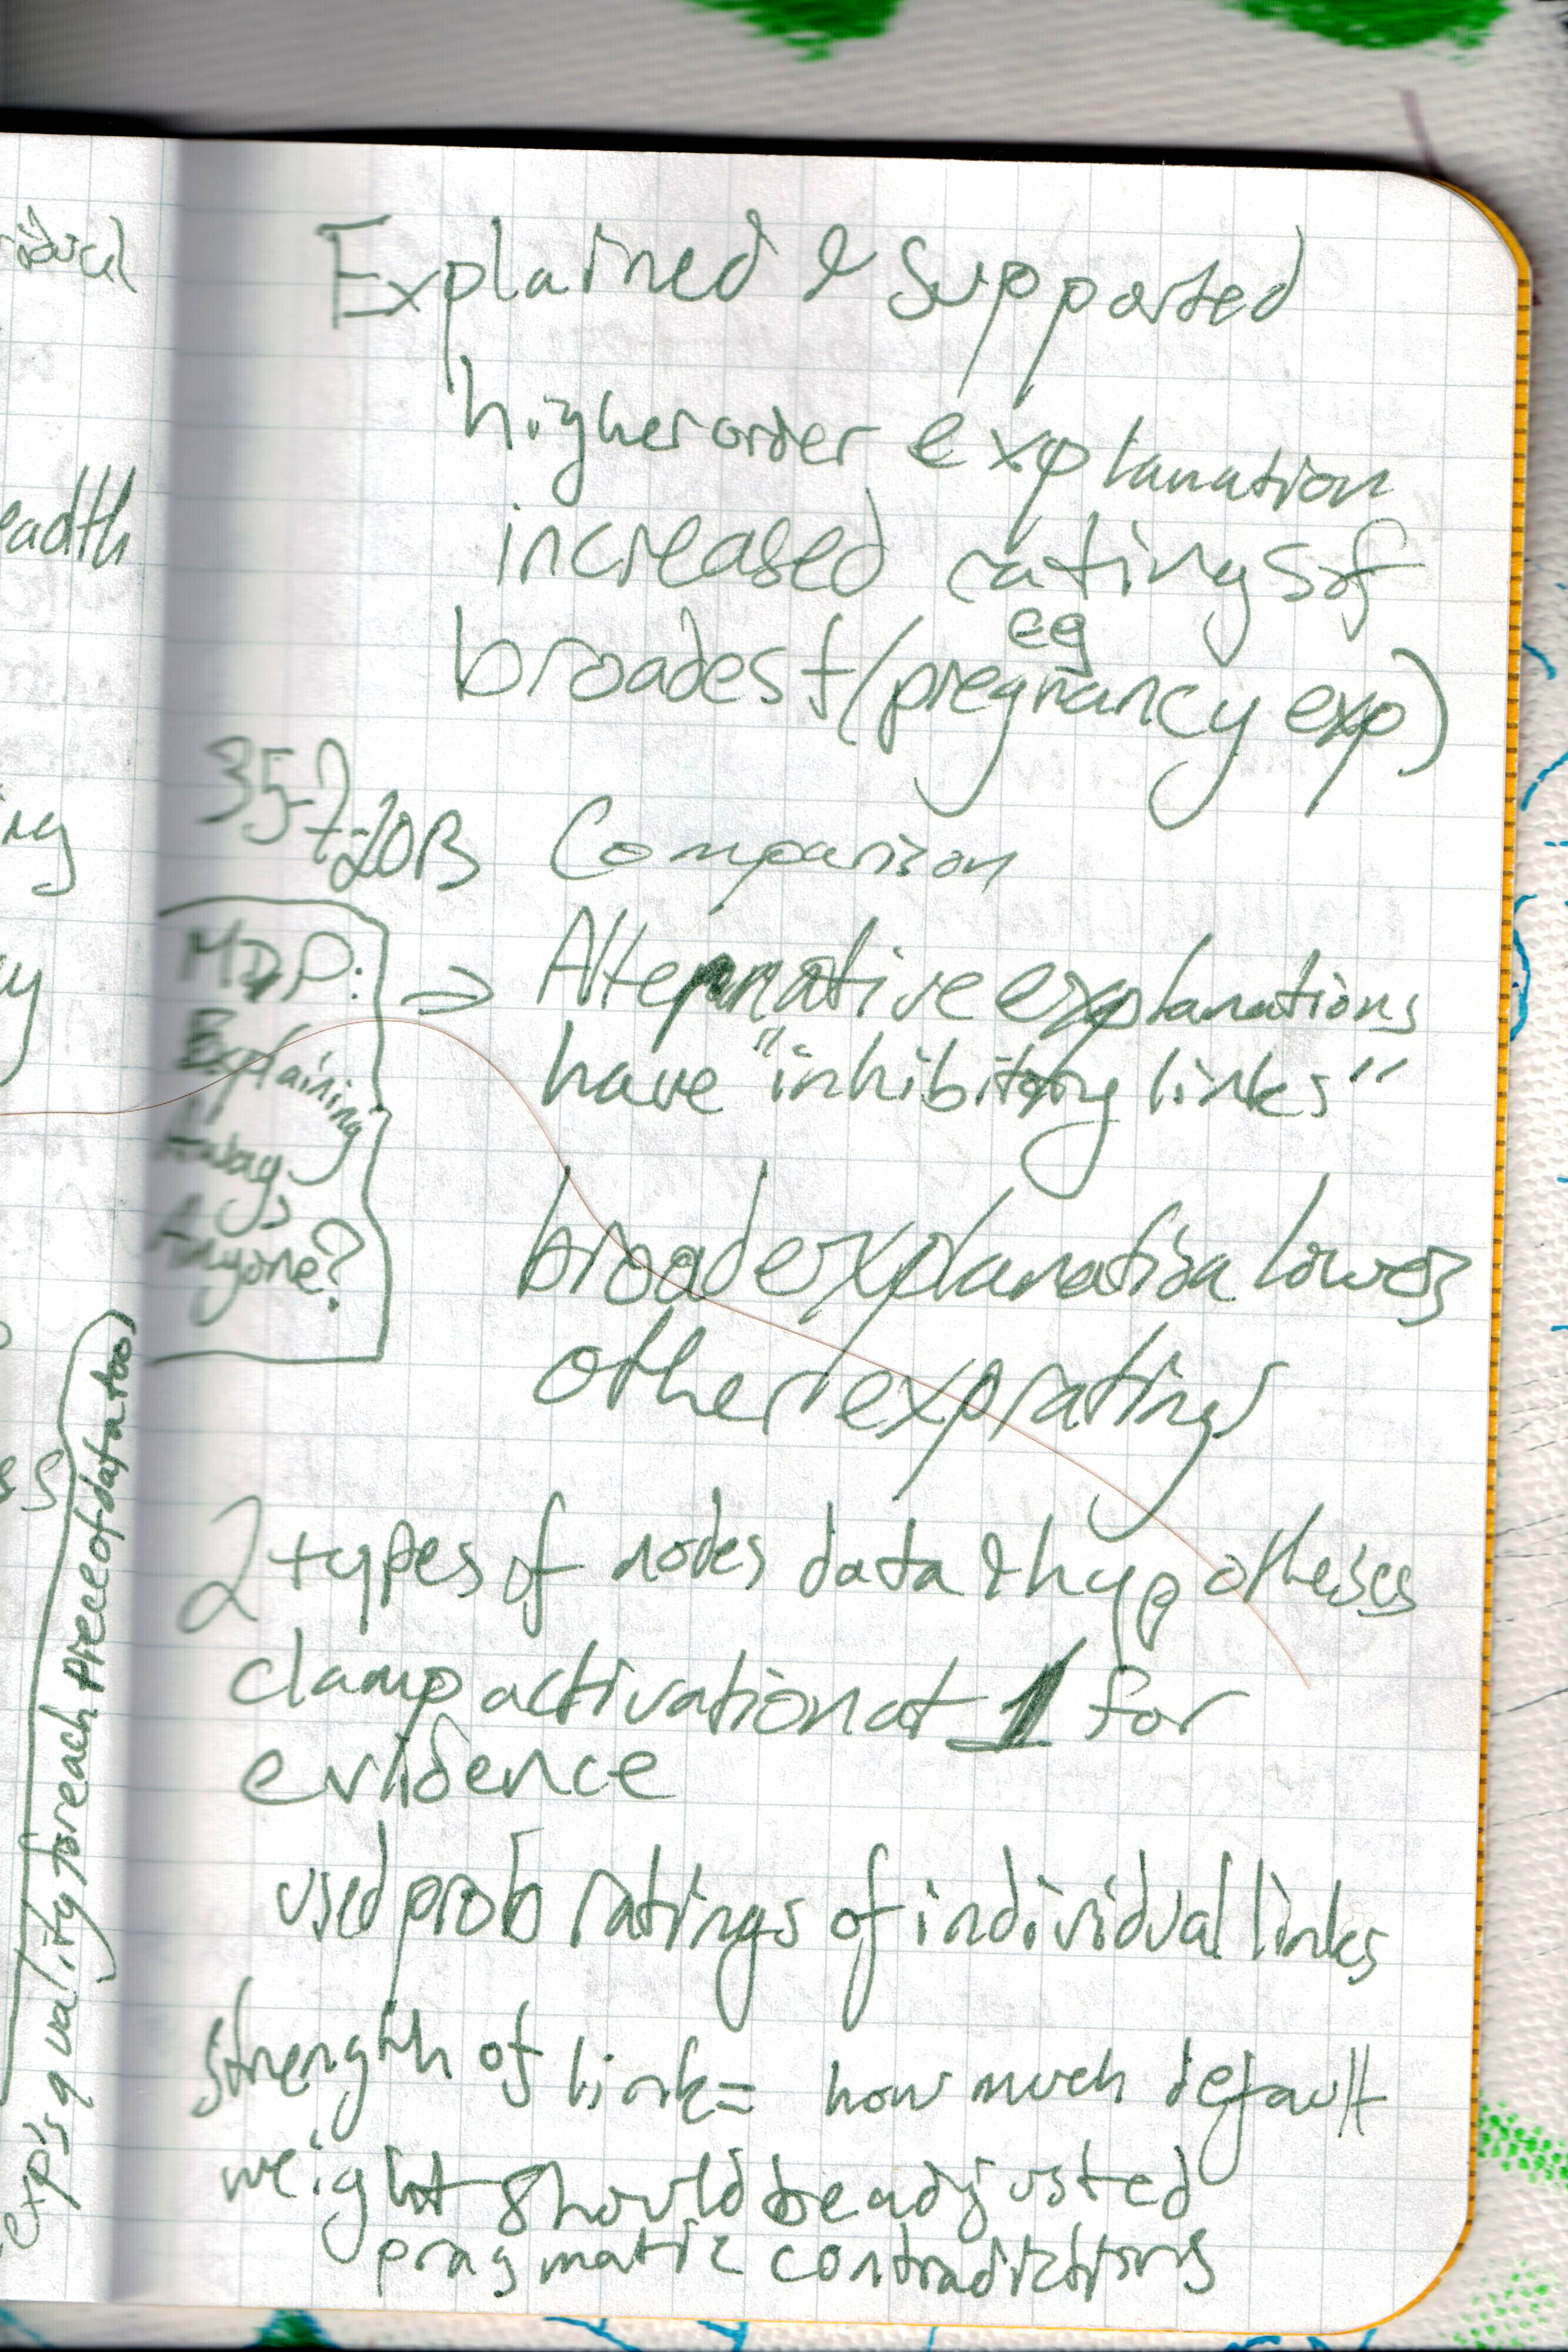 Explained & Supported
higher order explanation
increased ratings of
eg
broadest (pregnancy exp)
Comparison
⇒ Alternative explanations
have "inhibitory links"
Explaining
Away
Anyone?
broad explanation lowers
other exp ratings
2 types of nodes data & hypotheses
clamp activation at 1 for
evidence
used prob ratings of individual links
strength of link = how much default
weight should be adjusted
pragmatic contradictions
exp's quality for each piece of data too
eadth